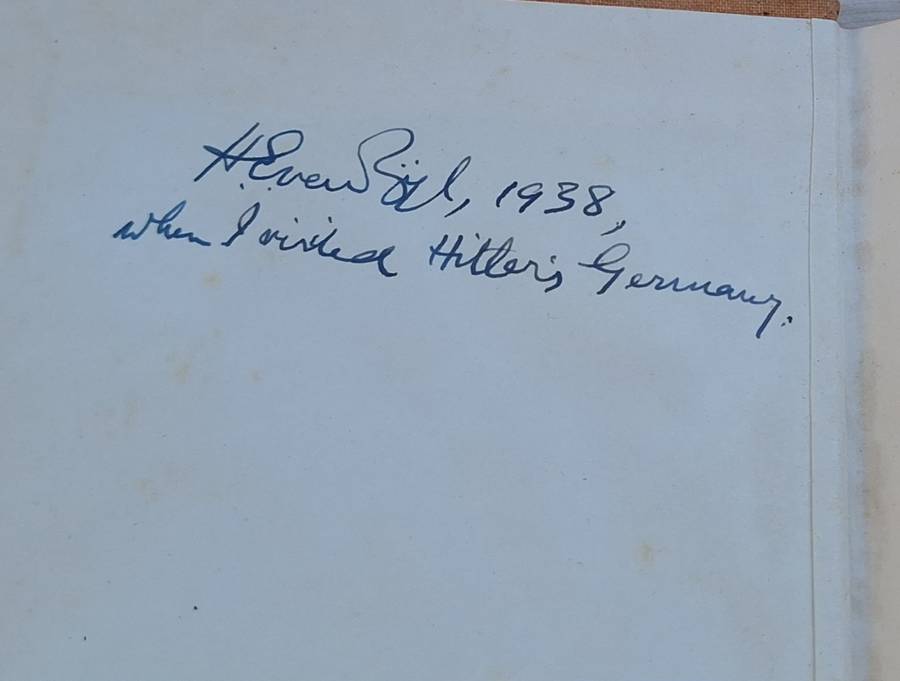 H. Evan 1938,
when I visited Hitler's Germany.